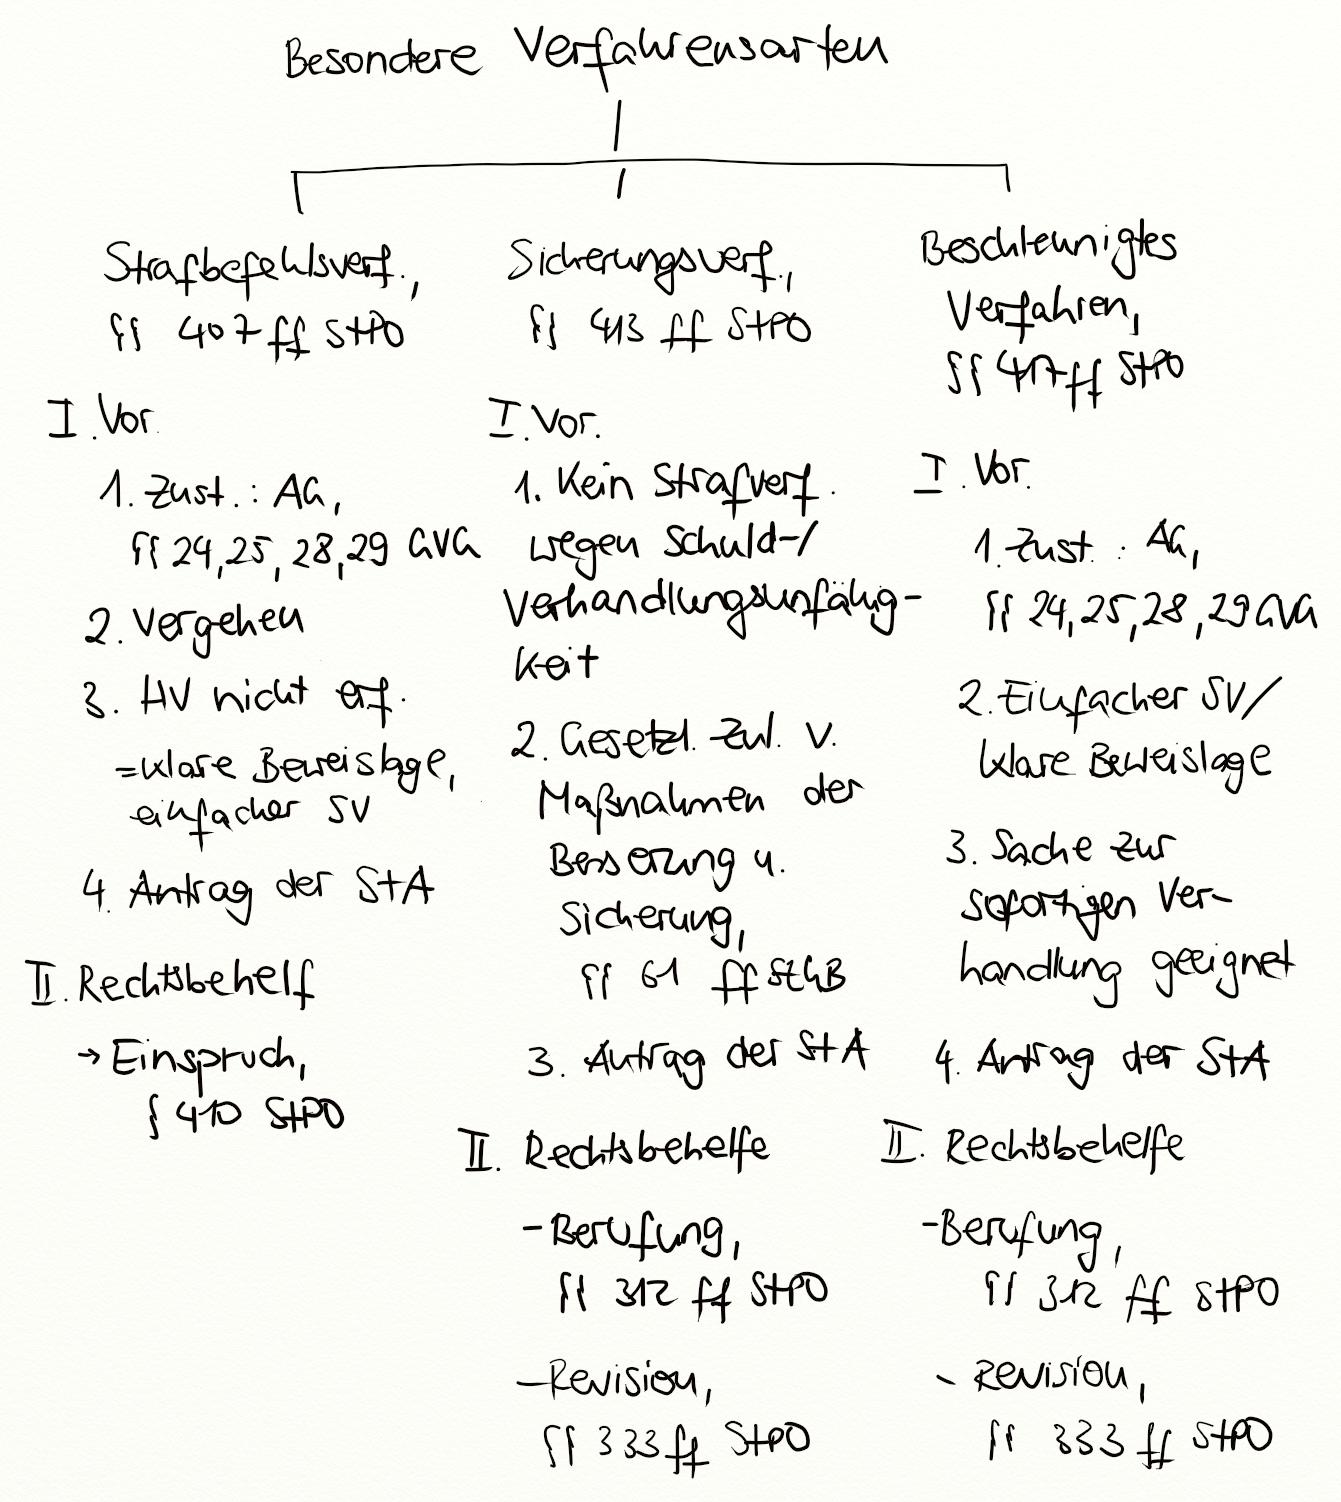 Besondere Verfahrensarten
Strafbefehlsverf.,
§§ 407 ff StPO
I. Vor.
1. Zust.: AG,
§§ 24, 25, 28, 29 GVG
2. Vergehen
3. HV nicht erf.
= klare Beweislage,
einfacher SV
4. Antrag der StA
II. Rechtsbehelf
→ Einspruch,
§ 410 StPO
Sicherungsverf.,
§§ 413 ff StPO
I. Vor.
1. Kein Strafverf.
wegen Schuld-/
Verhandlungsunfähig-
keit
2. Gesetzl. Zul. v.
Maßnahmen der
Besserung u.
Sicherung,
§§ 61 ff StGB
3. Antrag der StA
II. Rechtsbehelfe
- Berufung,
§§ 312 ff StPO
- Revision,
§§ 333 ff StPO
Beschleunigtes
Verfahren,
§§ 417 ff StPO
I. Vor.
1. Zust.: AG,
§§ 24, 25, 28, 29 GVG
2. Einfacher SV/
klare Beweislage
3. Sache zur
sofortigen Ver-
handlung geeignet
4. Antrag der StA
II. Rechtsbehelfe
- Berufung,
§§ 312 ff StPO
- Revision,
§§ 333 ff StPO